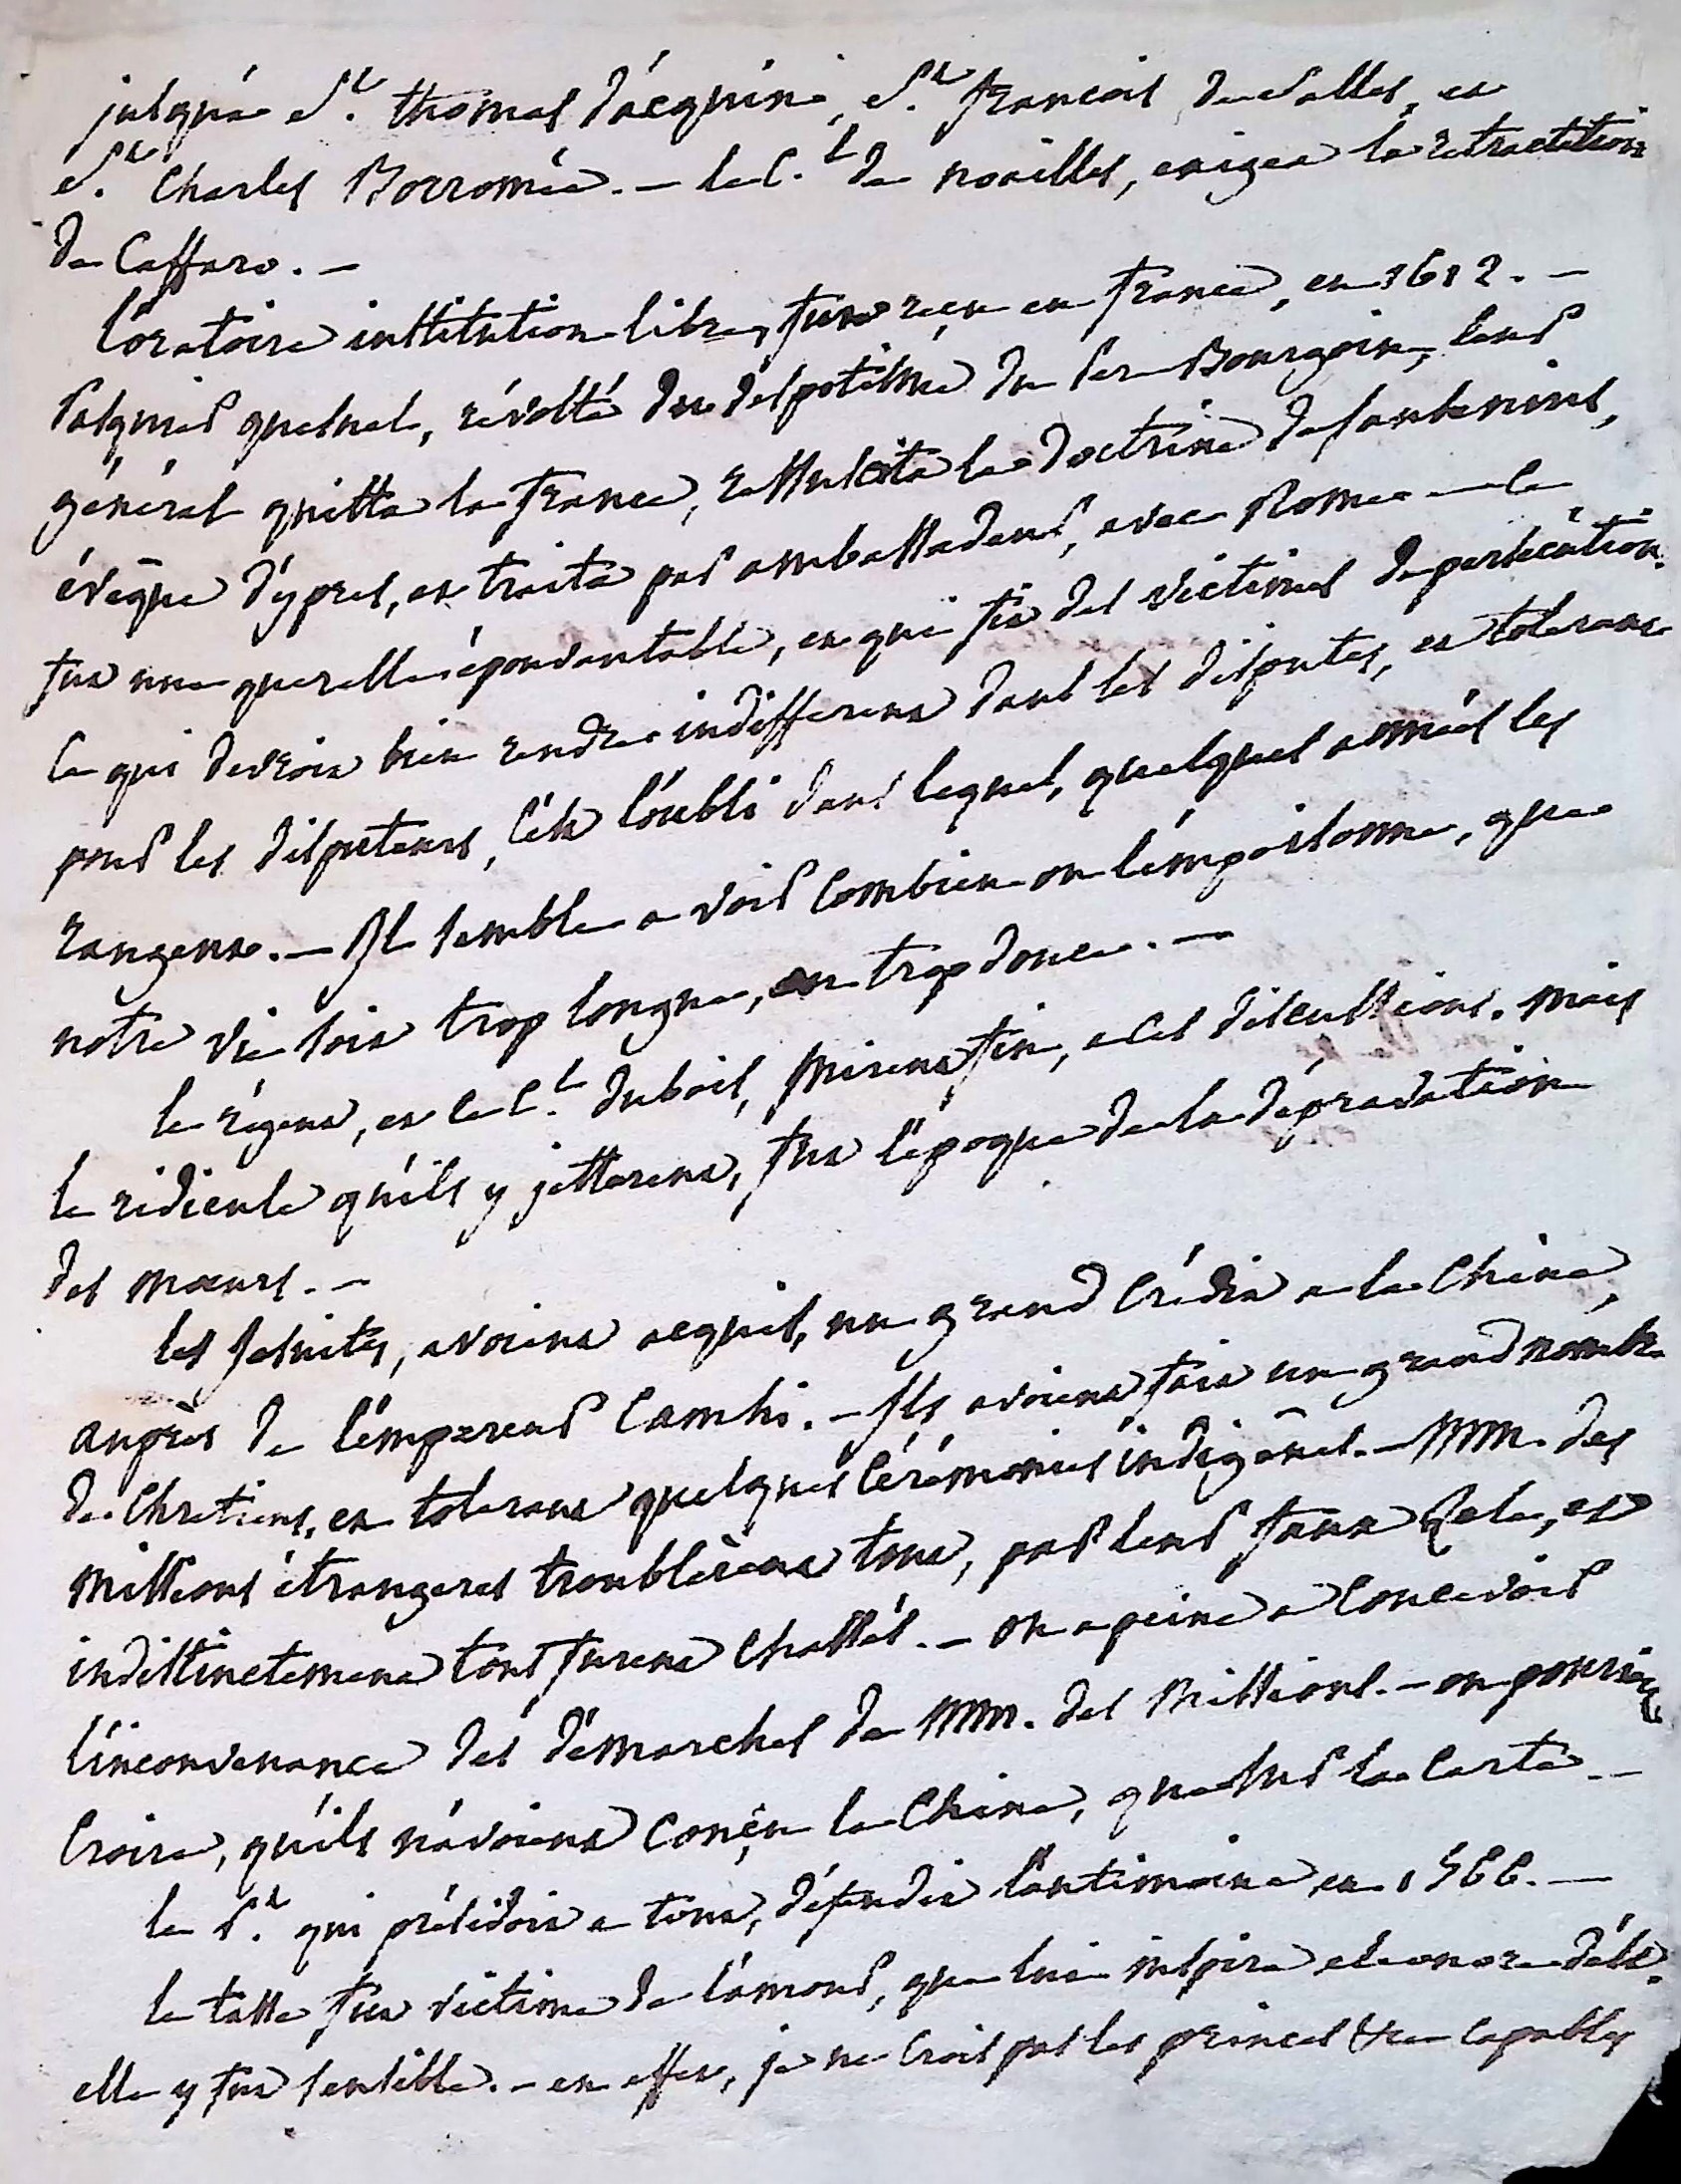 jusqu'à S.t thomas d'acquin, S.t francois de Salles, et
S.t Charles Borromée. — le C.l de noailles, exigea la retractation
de Caffaro. —
l'oratoire institution libre, fut reçu en france, en 1612. —
Pasquier quesnel, révolté du despotisme du Per Bourgoin, leur
général quitta la france, ressuscita la doctrine de Jansenius,
évêque d'ypres, et traita par ambassadeur, avec Rome — ce
fut une querelle épouvantable, et qui fit des victimes de persécution.
Ce qui devroit bien rendre indifferent dans les disputes, et tolerant
pour les disputeurs, c'est l'oubli dans lequel, quelques années les
rangent. — Il semble a voir combien on l'empoisonne, que
nôtre vie soit trop longue, ou trop douce. —
le régent, et le C.l dubois, mirent fin, a ces discussions. mais
le ridicule qu'ils y jetterent, fut l'epoque de la dépravation
des mœurs. —
les Jesuites, avoient acquis, un grand crédit a la Chine,
auprès de l'empereur Camhi. — Ils avoient fait un grand nombre
de Chretiens, en tolerant quelques cérémonies indigênes. — MM. des
Missions étrangeres troublèrent tout, par leur faux zele, et
indistinctement tous furent chassés. — on a peine a concevoir
l'inconvenance des démarches de MM. des Missions. — on pourroit
croire, qu'ils n'avoient conçu la Chine, que sur la carte —
le P.t qui présidoit a tout, défendit l'antimoine en 1566. —
le tasse fut victime de l'amour, que lui inspira eleonore d'est.
elle y fut sensible. — en effet, je ne crois pas les princes être capables